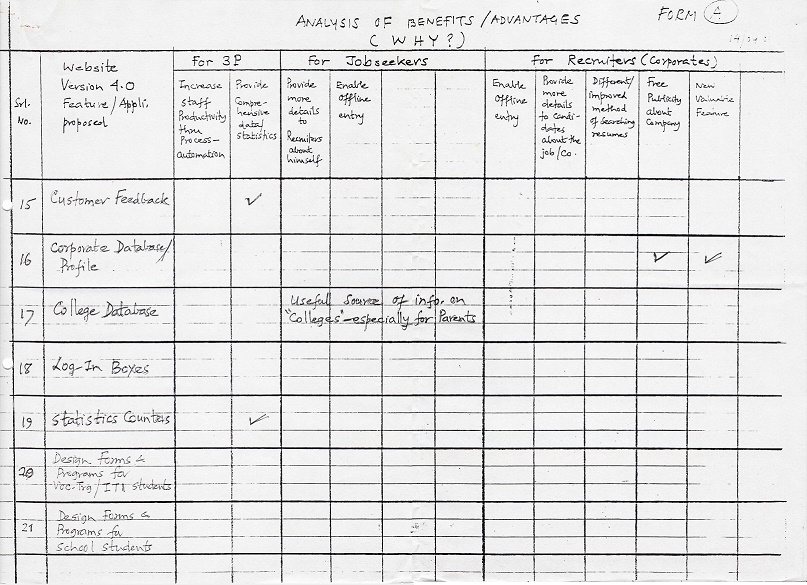 ANALYSIS OF BENEFITS/ADVANTAGES
(WHY?)
FORM A
Srl.
No.
Website
Version 4.0
Feature/Appli.
proposed
For 3P
Increase
staff
Productivity
thru
Process-
automation
Provide
Compre-
hensive
data/
statistics
For Jobseekers
Provide
more
details
to
Recruiters
about
himself
Enable
Offline
entry
For Recruiters (Corporates)
Enable
Offline
entry
Provide
more
details
to Candi-
dates
about the
job/Co.
Different/
improved
method
of Searching
resumes
Free
Publicity
about
Company
New
Valuable
Feature
15 Customer Feedback ✓
16 Corporate Database/
Profile ✓ ✓
17 College Database
Useful Source of info. on
"Colleges" - especially for Parents
18 Log-In Boxes
19 Statistics Counters ✓
20 Design Forms &
Programs for
Voc-Trg/ITI Students
21 Design Forms &
Programs for
School Students